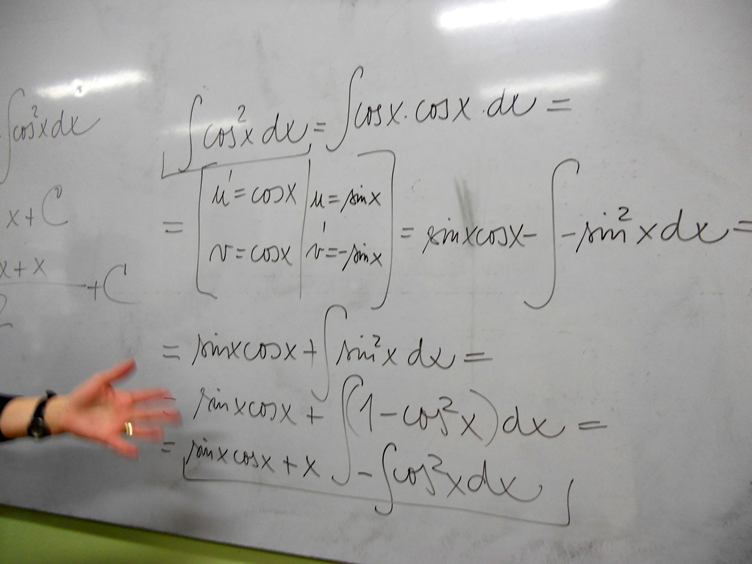 ∫cos²x dx
x + C
x + x
+ C
2
∫cos²x dx = ∫cosx · cosx · dx =
= [ u' = cosx | u = sinx
v = cosx | v' = -sinx ] = sinxcosx - ∫ -sin²x dx =
= sinxcosx + ∫sin²x dx =
= sinxcosx + ∫(1 - cos²x)dx =
= sinxcosx + x - ∫cos²x dx